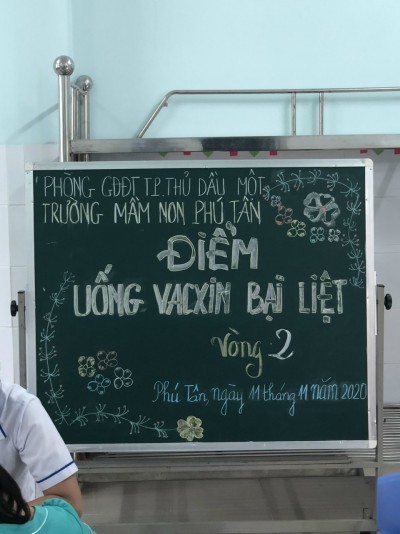 PHÒNG GDĐT TP.THỦ DẦU MỘT
TRƯỜNG MẦM NON PHÚ TÂN
ĐIỂM
UỐNG VACXIN BẠI LIỆT
Vòng 2
Phú Tân, ngày 11 tháng 11 năm 2020